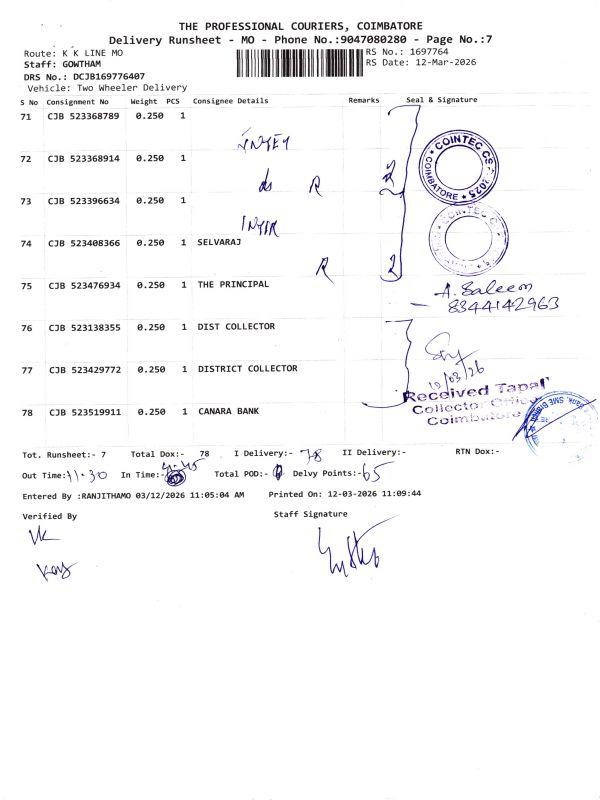 THE PROFESSIONAL COURIERS, COIMBATORE
Delivery Runsheet - MO - Phone No.:9047080280 - Page No.:7
Route: K K LINE MO
RS No.: 1697764
Staff: GOWTHAM
RS Date: 12-Mar-2026
DRS No.: DCJB169776407
Vehicle: Two Wheeler Delivery
S No Consignment No Weight PCS Consignee Details Remarks Seal & Signature
71 CJB 523368789 0.250 1
72 CJB 523368914 0.250 1
COINTEC CS
COIMBATORE
2025
R 2
73 CJB 523396634 0.250 1
COINTEC C
74 CJB 523408366 0.250 1 SELVARAJ
R 2
75 CJB 523476934 0.250 1 THE PRINCIPAL
A. Saleem
8344142963
76 CJB 523138355 0.250 1 DIST COLLECTOR
77 CJB 523429772 0.250 1 DISTRICT COLLECTOR
Received Tapal
Collector Office
Coimbatore
78 CJB 523519911 0.250 1 CANARA BANK
Tot. Runsheet:- 7 Total Dox:- 78 I Delivery:- 78 II Delivery:- RTN Dox:-
Out Time: 11.30 In Time:- Total POD:- Delvy Points:- 65
Entered By :RANJITHAMO 03/12/2026 11:05:04 AM Printed On: 12-03-2026 11:09:44
Verified By Staff Signature